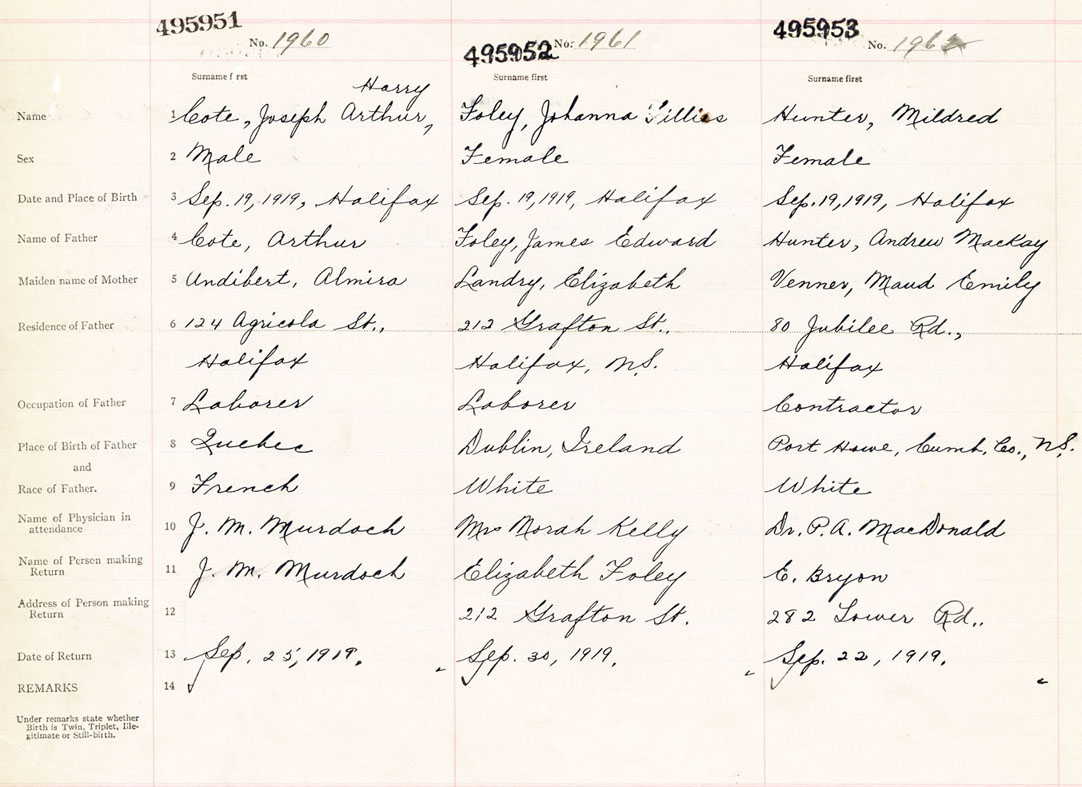 495951
No. 1960
495952 No. 1961
495953
No. 1962
Surname f rst
Surname first
Surname first
Harry
Name 1 Cote, Joseph Arthur, Foley, Johanna Hunter, Mildred
Sex 2 Male Female Female
Date and Place of Birth 3 Sep. 19, 1919, Halifax Sep. 19, 1919, Halifax Sep. 19, 1919, Halifax
Name of Father 4 Cote, Arthur Foley, James Edward Hunter, Andrew MacKay
Maiden name of Mother 5 Undibert, Almira Landry, Elizabeth Venner, Maud Emily
Residence of Father 6 124 Agricola St., 212 Grafton St., 80 Jubilee Rd.,
Halifax Halifax, N.S. Halifax
Occupation of Father 7 Laborer Laborer Contractor
Place of Birth of Father 8 Quebec Dublin, Ireland Port Howe, Cumb. Co., N.S.
and
Race of Father. 9 French White White
Name of Physician in
attendance 10 J. M. Murdoch Mrs Morah Kelly Dr. P.A. MacDonald
Name of Person making
Return 11 J. M. Murdoch Elizabeth Foley E. Bryon
Address of Person making
Return 12 212 Grafton St. 282 Tower Rd..
Date of Return 13 Sep. 25, 1919. Sep. 30, 1919. Sep. 22, 1919.
REMARKS 14
Under remarks state whether
Birth is Twin, Triplet, Ille-
gitimate or Still-birth.